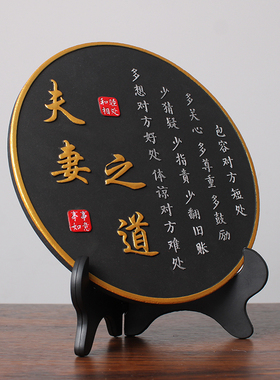 夫妻之道
和睦
相处
事事
如意
包容对方短处
多关心 多尊重 多鼓励
少猜疑 少指责 少翻旧账
多想对方好处 体谅对方难处